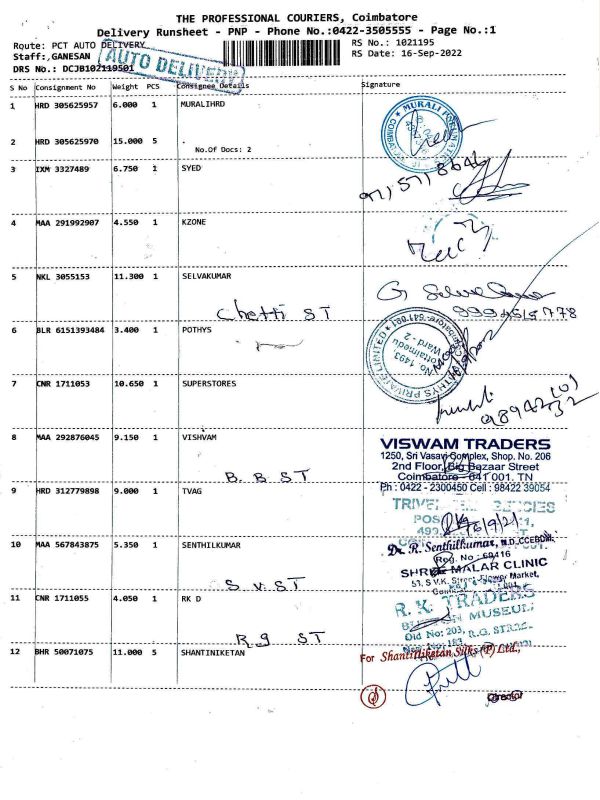 THE PROFESSIONAL COURIERS, Coimbatore
Delivery Runsheet - PNP - Phone No.:0422-3505555 - Page No.:1
Route: PCT AUTO DELIVERY
RS No.: 1021195
Staff:,GANESAN
RS Date: 16-Sep-2022
DRS No.: DCJB102119501
AUTO DELIVERY
S No Consignment No Weight PCS Consignee Details Signature
1 HRD 305625957 6.000 1 MURALIHRD
2 HRD 305625970 15.000 5 .
No.Of Docs: 2
3 IXM 3327489 6.750 1 SYED
4 MAA 291992907 4.550 1 KZONE
5 NKL 3055153 11.300 1 SELVAKUMAR
Chetti ST
6 BLR 6151393484 3.400 1 POTHYS
No 1493,
Ward - 2
7 CNR 1711053 10.650 1 SUPERSTORES
8 MAA 292876045 9.150 1 VISHVAM
B. B ST
VISWAM TRADERS
1250, Sri Vasavi Complex, Shop. No. 206
2nd Floor, Big Bazaar Street
Coimbatore - 641 001. TN
Ph : 0422 - 2300450 Cell : 98422 39054
9 HRD 312779898 9.000 1 TVAG
10 MAA 567843875 5.350 1 SENTHILKUMAR
S.V. ST
Dr. R. Senthilkumar,
Reg. No : 69416
SHREE MALAR CLINIC
11 CNR 1711055 4.050 1 RK D
R g ST
R. K. TRADERS
Old No: 203, R.G. STREET
12 BHR 50071075 11.000 5 SHANTINIKETAN
For Shantiniketan Silks (P) Ltd.,
Director